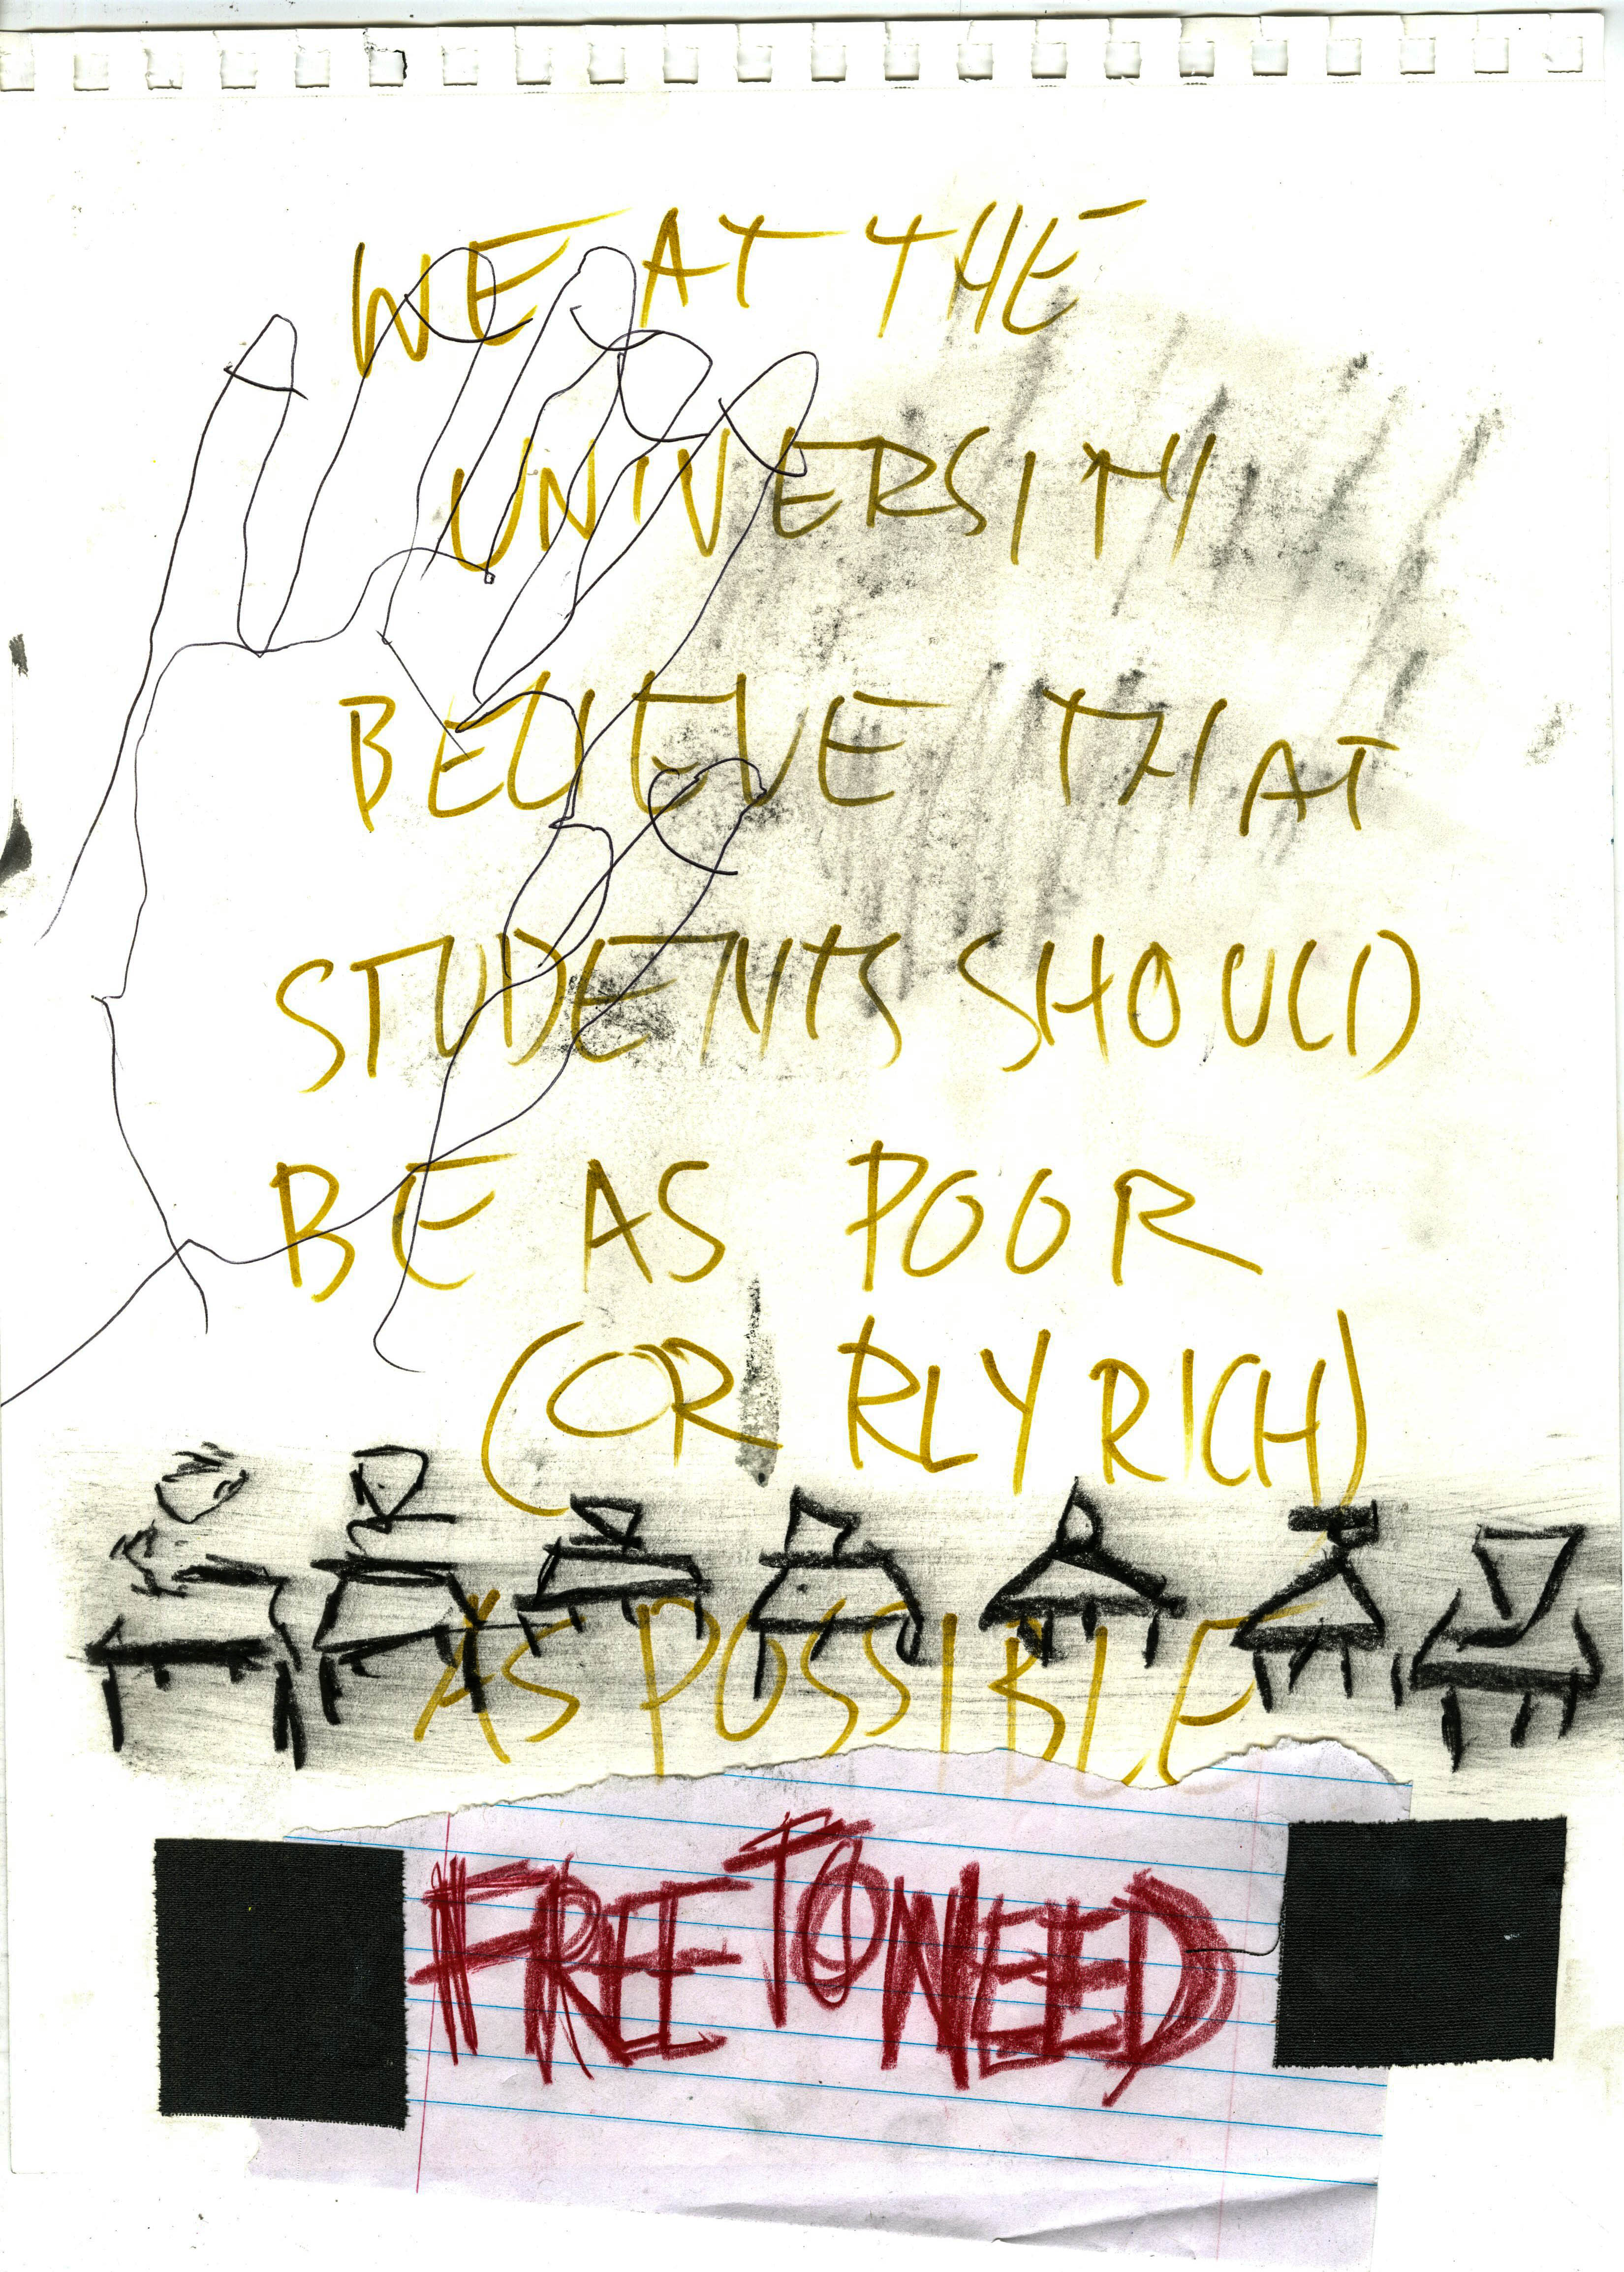 WE AT THE
UNIVERSITY
BELIEVE THAT
STUDENTS SHOULD
BE AS POOR
(OR RLY RICH)
AS POSSIBLE
FREE TO NEED